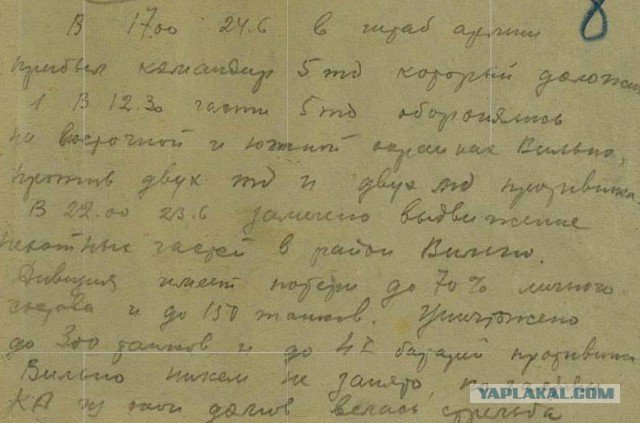 8
В 17 00 24.6 в штаб армии
прибыл командир 5 тд который доложил
1 В 12.30 части 5 тд оборонялись
на восточной и южной окраинах Вильно,
против двух тд и двух мд противника.
В 22.00 23.6 замечено выдвижение
пехотных частей в район Вильно.
Дивизия имеет потери до 70% личного
состава и до 150 танков. Уничтожено
до 300 танков и до 4х батарей противника
Вильно никем не занято,
КА из домов велась стрельба
YAPLAKAL.COM